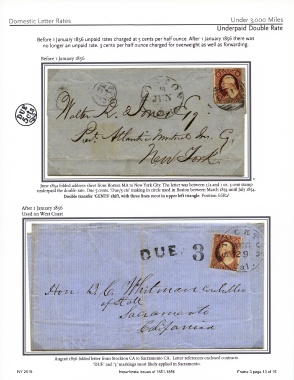 Domestic Letter Rates
Under 3,000 Miles
Underpaid Double Rate
Before 1 January 1856 unpaid rates charged at 5 cents per half ounce. After 1 January 1856 there was
no longer an unpaid rate. 3 cents per half ounce charged for overweight as well as forwarding.
Before 1 January 1856
DUE
5cts
Walter R. Jones Esq.
Prest. Atlantic Mutual Ins. Co
New York
June 1854 folded address sheet from Boston MA to New York City. The letter was between 1/2 and 1 oz. 3 cent stamp
underpaid the double rate. Due 5 cents. 'Due/5 cts' marking in circle used in Boston between March 1852 until July 1854.
Double transfer 'GENTS' shift, with three lines recut in upper left triangle.
After 1 January 1856
Used on West Coast
DUE 3
Hon. B. C. Whitman
of Hall
Sacramento
California
August 1856 folded letter from Stockton CA to Sacramento CA. Letter references enclosed contracts.
'DUE' and '3' markings most likely applied in Sacramento.
NY 2016
Imperforate Issues of 1851-1856